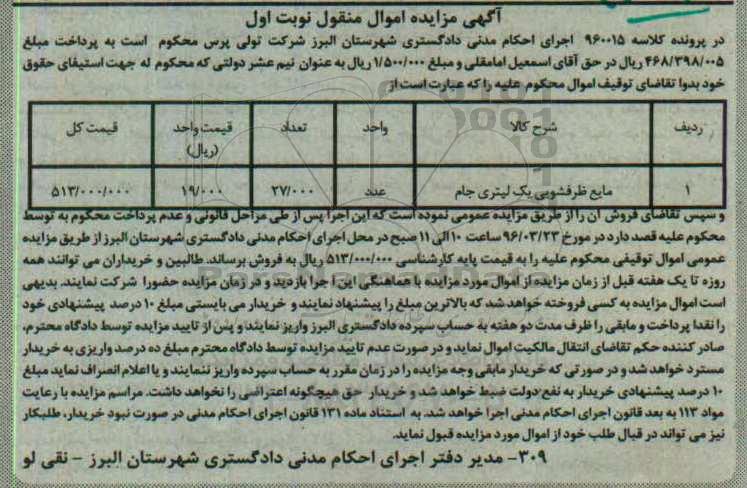 آگهی مزایده اموال منقول نوبت اول
در پرونده کلاسه ۹۶۰۰۱۵ اجرای احکام مدنی دادگستری شهرستان البرز شرکت تولی پرس محکوم است به پرداخت مبلغ
۴۶۸/۳۹۸/۰۰۵ ریال در حق آقای اسمعیل امامقلی و مبلغ ۱/۵۰۰/۰۰۰ ریال به عنوان نیم عشر دولتی که محکوم له جهت استیفای حقوق
خود بدوا تقاضای توقیف اموال محکوم علیه را که عبارت است از
ردیف شرح کالا واحد تعداد قیمت واحد (ریال) قیمت کل
۱ مایع ظرفشویی یک لیتری جام عدد ۲۷/۰۰۰ ۱۹/۰۰۰ ۵۱۳/۰۰۰/۰۰۰
و سپس تقاضای فروش آن را از طریق مزایده عمومی نموده است که این اجرا پس از طی مراحل قانونی و عدم پرداخت محکوم به توسط
محکوم علیه قصد دارد در مورخ ۹۶/۰۳/۲۳ ساعت ۱۰ الی ۱۱ صبح در محل اجرای احکام مدنی دادگستری شهرستان البرز از طریق مزایده
عمومی اموال توقیفی محکوم علیه را به قیمت پایه کارشناسی ۵۱۳/۰۰۰/۰۰۰ ریال به فروش برساند. طالبین و خریداران می توانند همه
روزه تا یک هفته قبل از زمان مزایده از اموال مورد مزایده با هماهنگی این اجرا بازدید و در زمان مزایده حضورا شرکت نمایند. بدیهی
است اموال مزایده به کسی فروخته خواهد شد که بالاترین مبلغ را پیشنهاد نمایند و خریدار می بایستی مبلغ ۱۰ درصد پیشنهادی خود
را نقدا پرداخت و مابقی را ظرف مدت دو هفته به حساب سپرده دادگستری البرز واریز نمایند و پس از تایید مزایده توسط دادگاه محترم،
صادر کننده حکم تقاضای انتقال مالکیت اموال نماید و در صورت عدم تایید مزایده توسط دادگاه محترم مبلغ ده درصد واریزی به خریدار
مسترد خواهد شد و در صورتی که خریدار مابقی وجه مزایده را در زمان مقرر به حساب سپرده واریز ننمایند و یا اعلام انصراف نماید مبلغ
۱۰ درصد پیشنهادی خریدار به نفع دولت ضبط خواهد شد و خریدار حق هیچگونه اعتراضی را نخواهد داشت. مراسم مزایده با رعایت
مواد ۱۱۳ به بعد قانون اجرای احکام مدنی اجرا خواهد شد. به استناد ماده ۱۳۱ قانون اجرای احکام مدنی در صورت نبود خریدار، طلبکار
نیز می تواند در قبال طلب خود از اموال مورد مزایده قبول نماید.
۳۰۹- مدیر دفتر اجرای احکام مدنی دادگستری شهرستان البرز - نقی لو